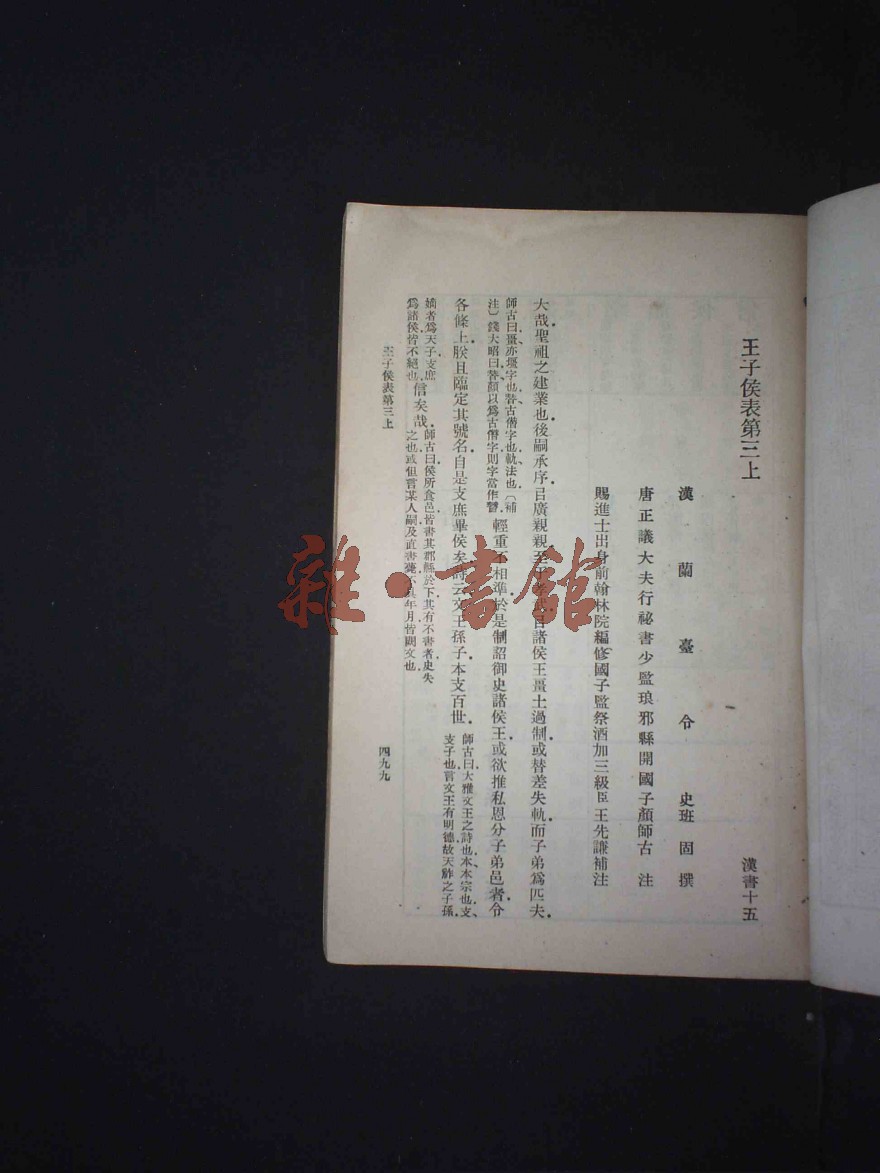 王子侯表第三上
漢書十五
漢蘭臺令史班固撰
唐正議大夫行祕書少監琅邪縣開國子顏師古注
賜進士出身前翰林院編修國子監祭酒加三級臣王先謙補注
大哉聖祖之建業也後嗣承序㠯廣親親至于孝武㠯諸侯王畺土過制或替差失軌而子弟爲匹夫
師古曰畺亦疆字也替古僭字也軌法也〔補
注〕錢大昭曰替顏以爲古僭字則字當作朁
輕重不相準於是制詔御史諸侯王或欲推私恩分子弟邑者令
各條上朕且臨定其號名自是支庶畢侯矣詩云文王孫子本支百世
師古曰大雅文王之詩也本本宗也支
支子也言文王有明德故天祚之子孫
嫡者爲天子支庶
爲諸侯皆不絕也
信矣哉
師古曰侯所食邑皆書其郡縣於下其有不書者史失
之也或但言某人嗣及直書薨不具年月皆闕文也
王子侯表第三上
四九九
雜·書館